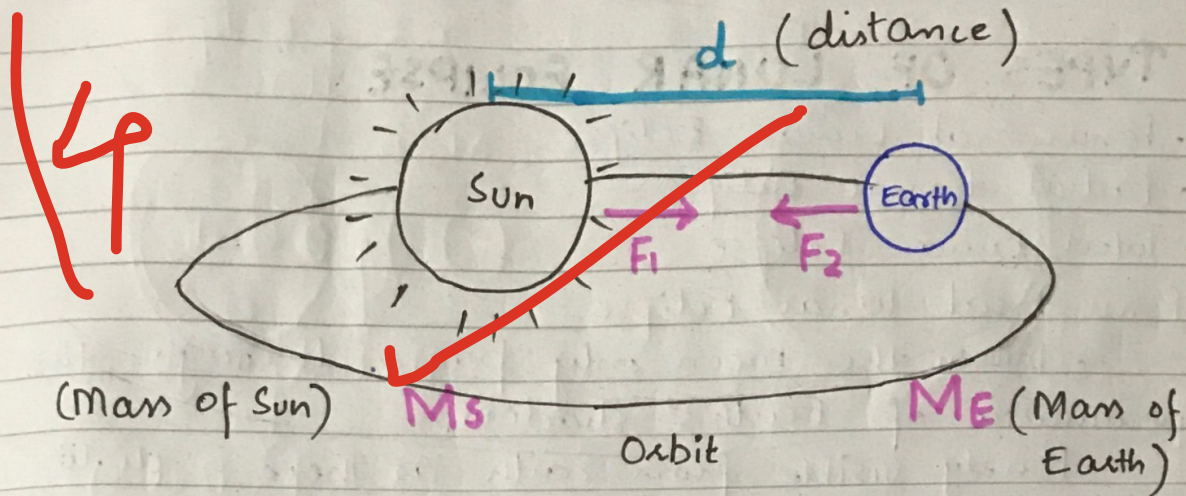 d (distance)
Sun
Earth
F1
F2
(Mass of Sun) Ms
ME (Mass of
Earth)
Orbit